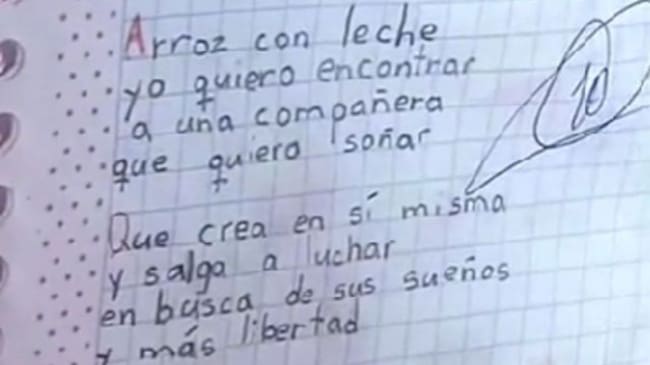 Arroz con leche
yo quiero encontrar
a una compañera
que quiera soñar
Que crea en sí misma
y salga a luchar
en busca de sus sueños
y más libertad
10